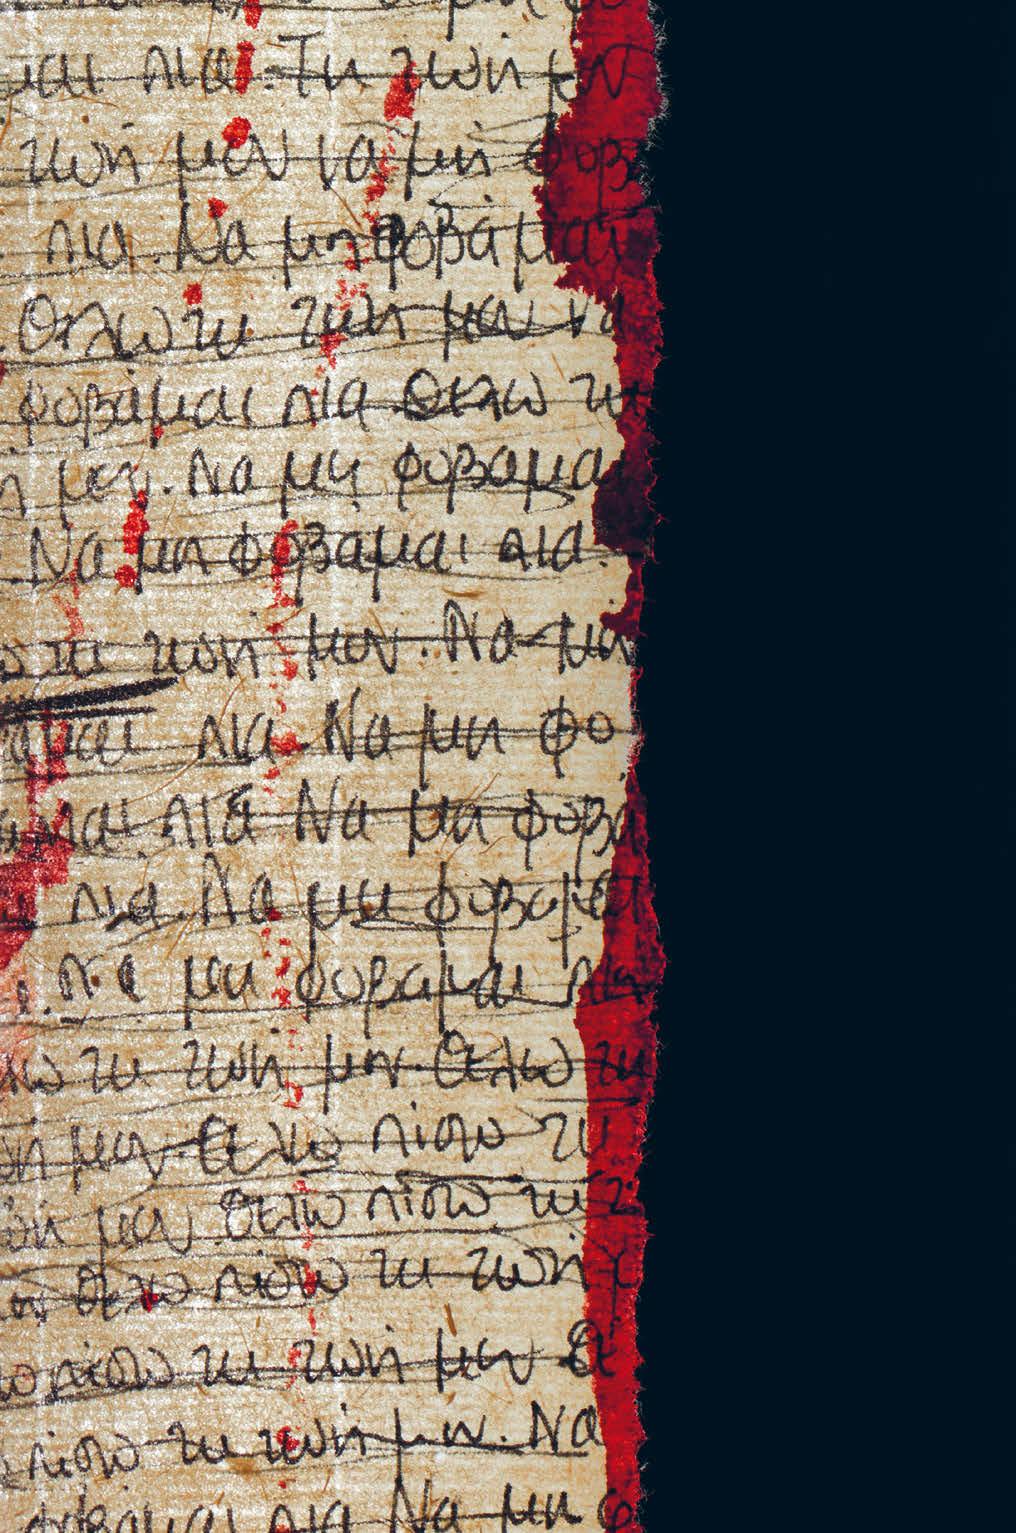 μαι πια. Τη ζωή μου
ζωή μου να μη φοβά
πια. Να μη φοβάμαι
Θελω τη ζωή μου να
φοβάμαι πια Θελω τη
μου. Να μη φοβαμαι
Να μη φοβαμαι πια.
τη ζωή μου. Να μη
αμαι πια. Να μη φο
αμαι πια Να μη φοβά
πια. Να μη φοβαμαι
Να μη φοβαμαι πια
τη ζωή μου. Θελω τη
μου Θελω πίσω τη
μου Θελω πίσω τη ζ
Θελω πίσω τη ζωή μ
πίσω τη ζωή μου Θε
πίσω τη ζωή μου. Να
φοβαμαι πια Να μη φ